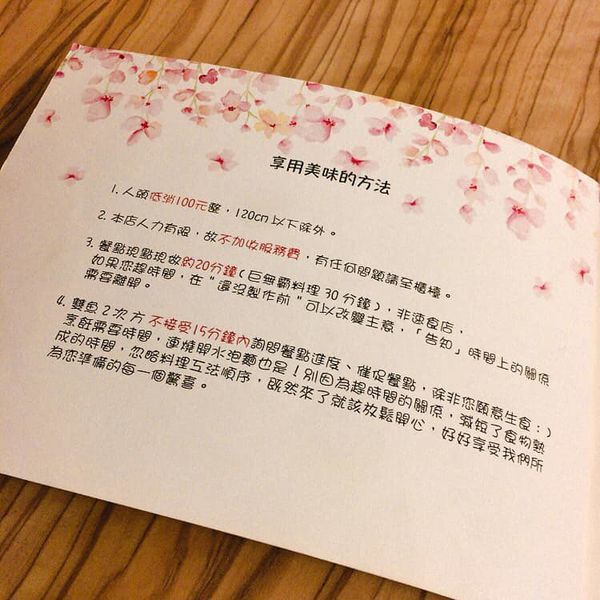 享用美味的方法
1. 人頭低消100元整，120cm以下除外。
2. 本店人力有限，故不加收服務費，有任何問題請至櫃檯。
3. 餐點現點現做約20分鐘(巨無霸料理30分鐘)，非速食店，
如果您趕時間，在"還沒製作前"可以改變主意，「告知」時間上的關係
需要離開。
4. 雙魚2次方 不接受15分鐘內詢問餐點進度、催促餐點，除非您願意生食:)
烹飪需要時間，連燒開水泡麵也是！別因為趕時間的關係，減短了食物熟
成的時間，忽略料理工法順序，既然來了就該放鬆開心，好好享受我們所
為您準備的每一個驚喜。